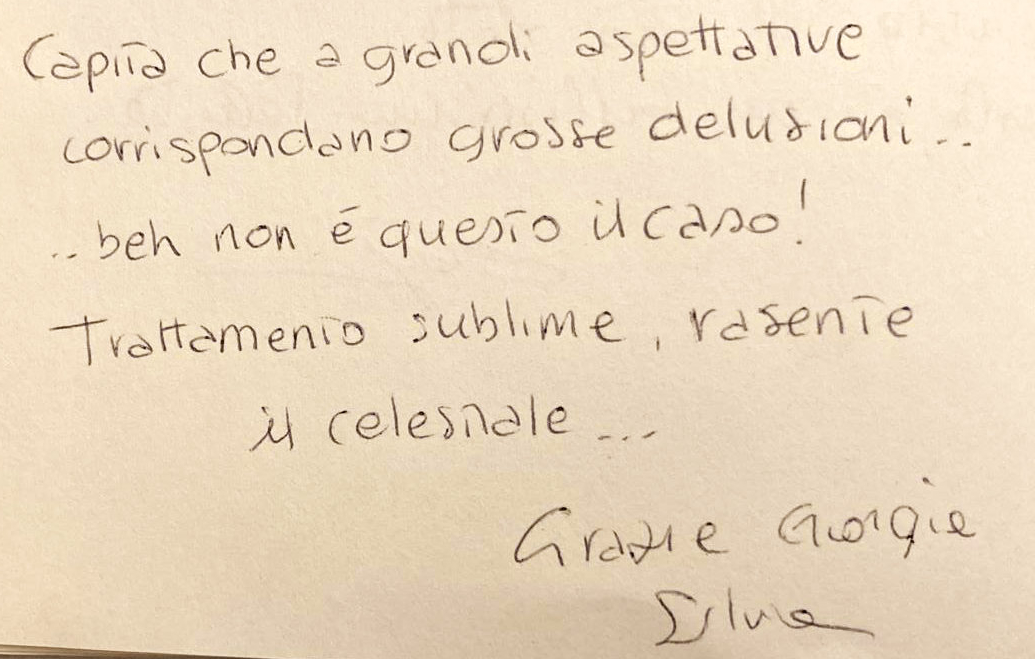 Capita che a grandi aspettative
corrispondano grosse delusioni..
..beh non é questo il caso!
Trattamento sublime, rasente
il celestiale...
Grazie Giorgia
Silvia